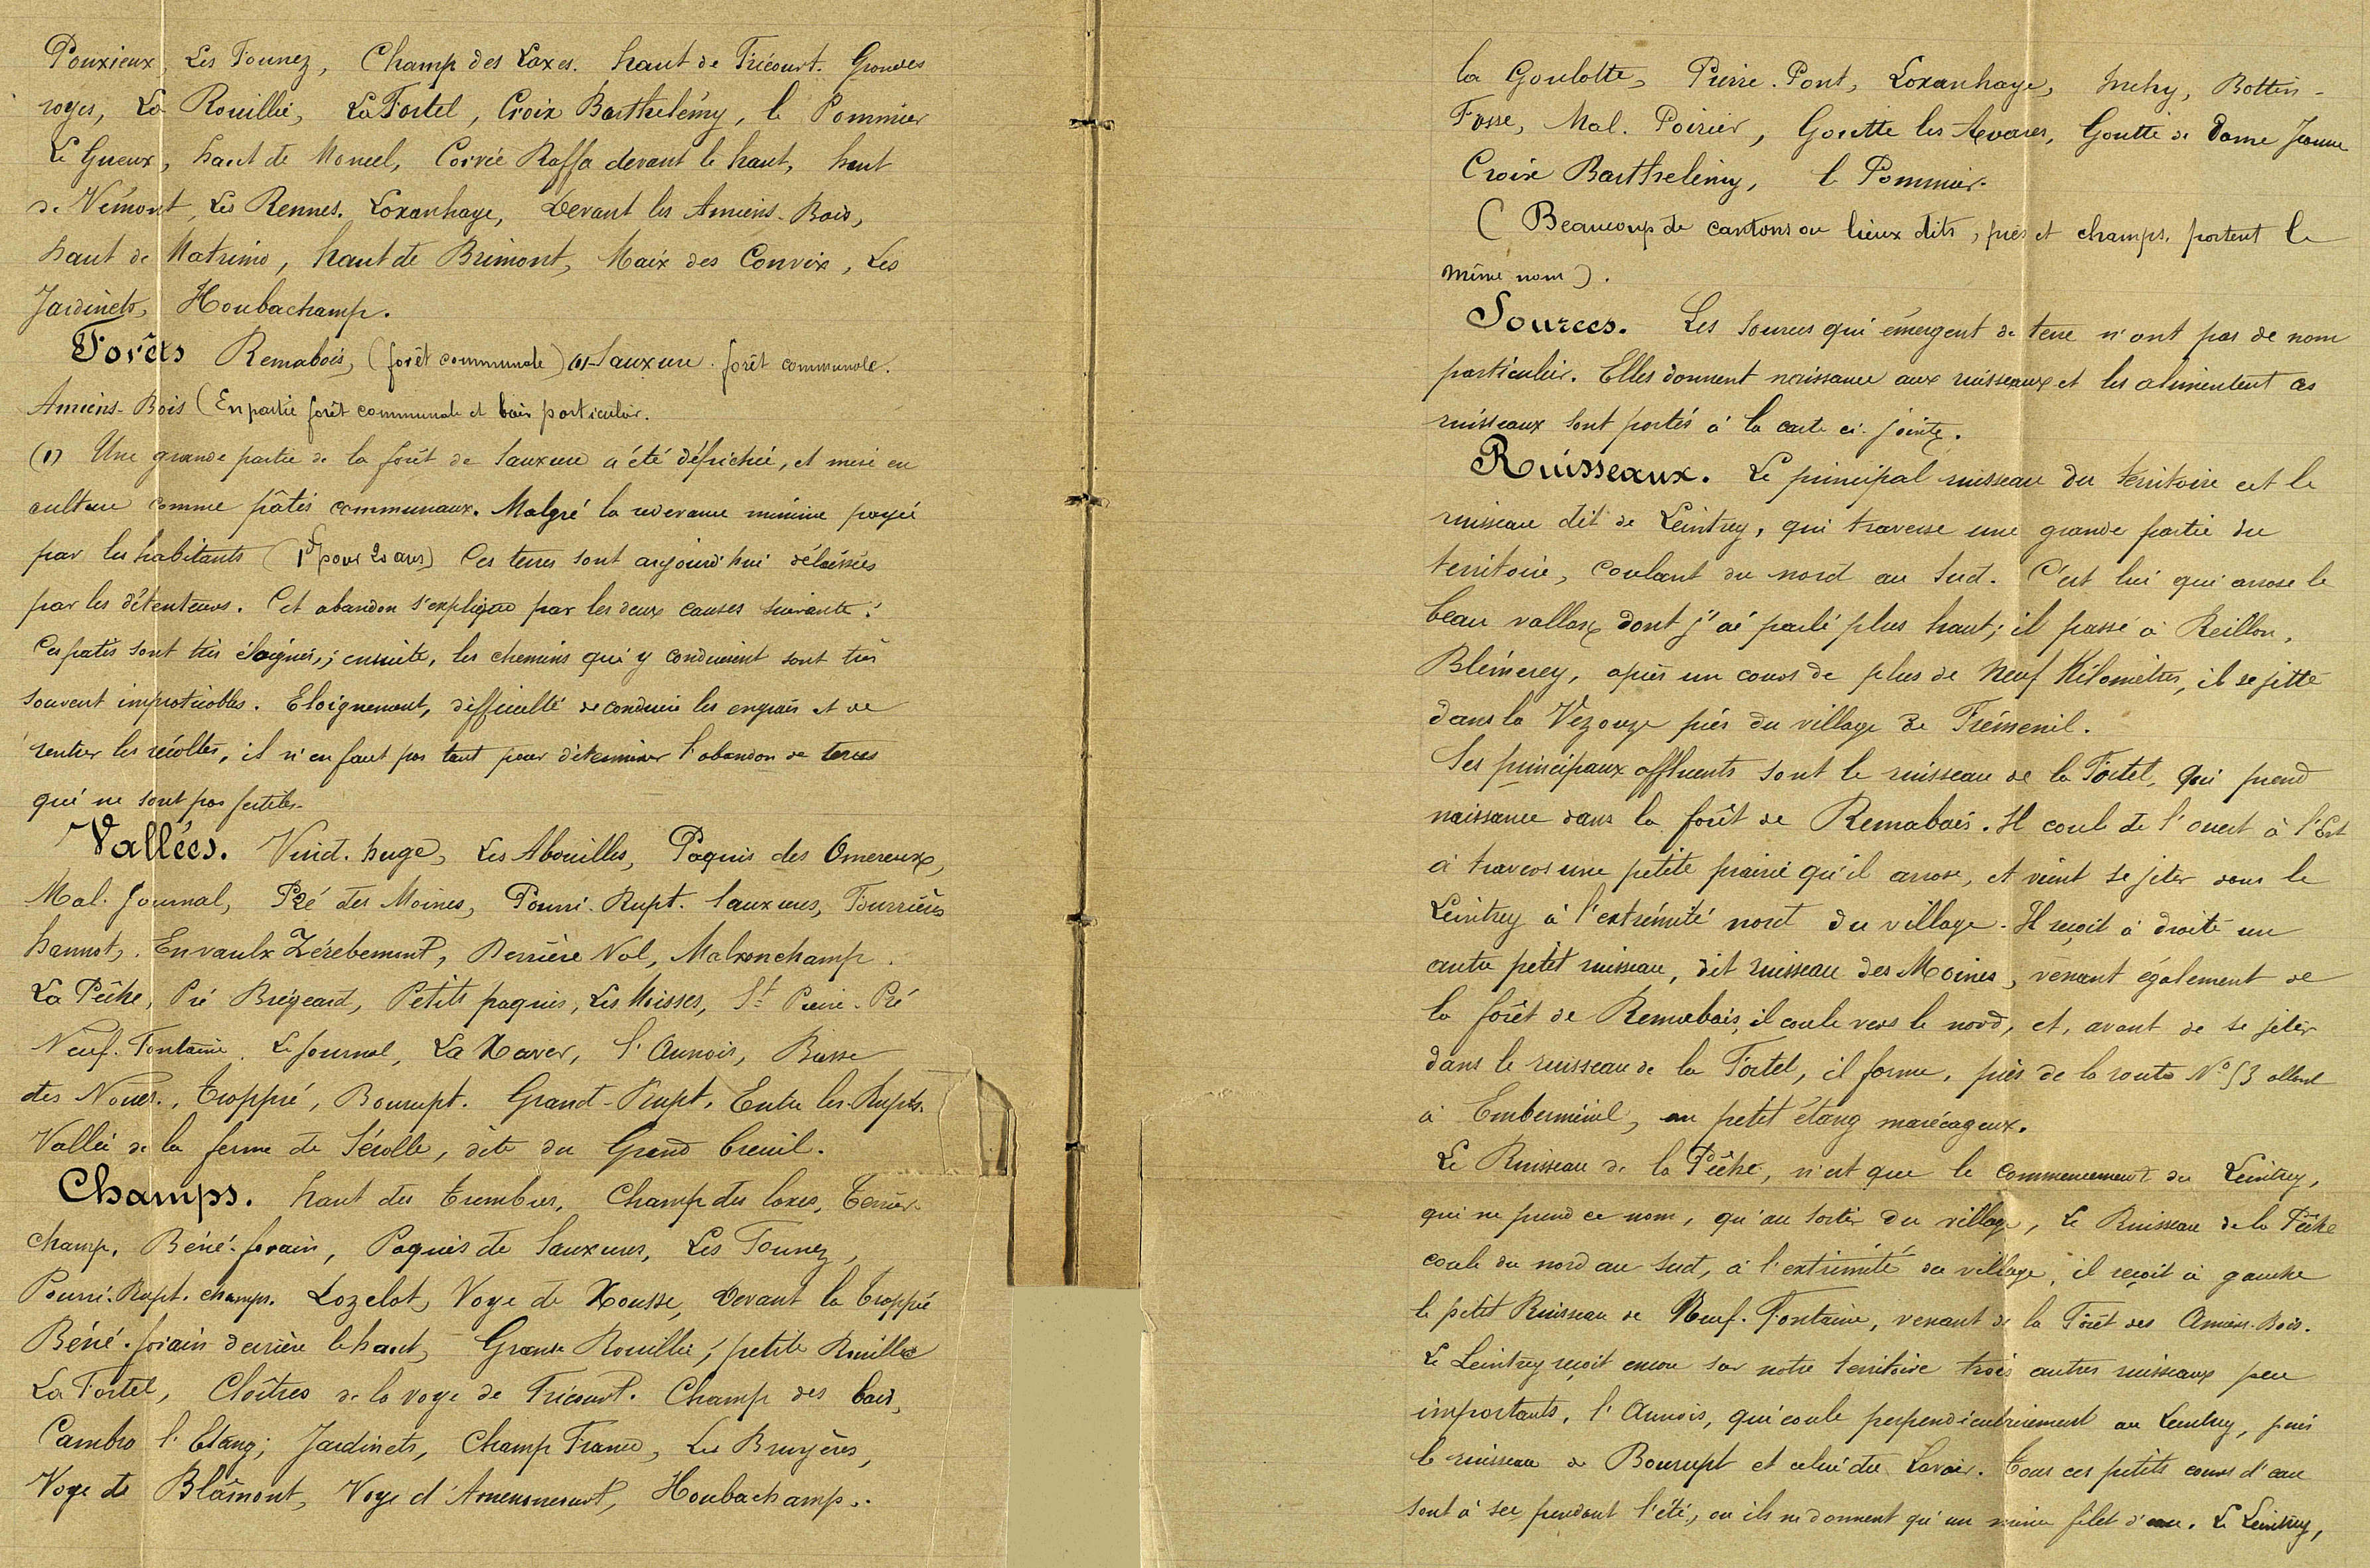 Pouxieux, Les Tounez, Champ des Loxes. haut de Tricourt. Grandes
royes, La Rouillée, La Fortel, Croix Barthelémy, le Pommier
Le Gueux, haut de Moncel, Corvée Raffa devant le haut, haut
de Vémont, Les Rennes. Loxanhaye, Devant les Amiens-Bois,
haut de Matrimo, haut de Brimont, Maix des Convix, Les
Jardinets, Houbachamp.
Forêts Remabois, (forêt communale) (1)-Sauxure. forêt communale.
Amiens-Bois (En partie forêt communale et bois particulier.
(1) Une grande partie de la forêt de Sauxure a été défrichée, et mise en
culture comme pâtis communaux. Malgré la redevance minime payée
par les habitants (1f pour 20 ares) Ces terres sont aujourd'hui délaissées
par les détenteurs. Cet abandon s'explique par les deux causes suivante:
Ces patis sont très éloignés,; ensuite, les chemins qui y conduisent sont très
souvent impraticables. Eloignement, difficulté de conduire les engrais et de
rentrer les récoltes, il n'en faut pas tant pour déterminer l'abandon de terres
qui ne sont pas fertiles.
Vallées. huge, Les Abouilles, Paquis des Omereux,
Mal. Journal, Pré des Moines, Pourri-Rupt. Sauxures, Tourrières
hannot, Envaulx Zérebemont, Derrière Val, Malxonchamp.
La Pêche, Pré Brégeard, Petits paquis, Les Moisses, St Pierre-Pré
Neuf-Fontaine. Le Journal, La Xaver, l'Aunois, Basse
des Noues., Troppré, Bourupt. Grand-Rupt, Entre les-Rupts.
Vallée de la ferme de Sérolle, dite du Grand breuil.
Champs. haut des trembles, Champ des loxes, Terrier-
champ. Béné-forain, Paquis de Sauxures, Les Tounez,
Pourri-Rupt. champs. Lozelot, Voye de Xousse, Devant la Troppré
Béné-forain derrière le haut, Grande Rouillée, petite Rouillée
La Fortel, Cloîtres de la voye de Tricourt. Champ des bois,
Cambro l'Etang; Jardinets, Champ France, Les Bruyères,
Voye de Blâmont, Voye d'Amenoncourt, Houbachamp..
la Goulotte, Pierre-Pont, Loxanhaye, Bottin-
Fosse, Mal-Poirier, Goutte les Avoines, Goutte de Dame Jeanne
Croix Barthelémy, le Pommier.
(Beaucoup de cantons ou lieux dits, prés et champs, portent le
même nom).
Sources. Les sources qui émergent de terre n'ont pas de nom
particulier. Elles donnent naissance aux ruisseaux et les alimentent ces
ruisseaux sont portés à la carte ci-jointe.
Ruisseaux. Le principal ruisseau du territoire est le
ruisseau dit de Leintrey, qui traverse une grande partie du
territoire, coulant du nord au sud. C'est lui qui arrose le
beau vallon dont j'ai parlé plus haut; il passe à Reillon,
Blémerey, après un cours de plus de neuf Kilomètres, il se jette
dans la Vezouze près du village de Fréménil.
Ses principaux affluents sont le ruisseau de la Fortel, qui prend
naissance dans la forêt de Remabois. Il coul de l'ouest à l'Est
à travers une petite prairie qu'il arrose, et vient se jeter dans le
Leintrey à l'extrémité nord du village. Il reçoit à droite un
autre petit ruisseau, dit ruisseau des Moines, venant également de
la forêt de Remabois, il coule vers le nord, et, avant de se jeter
dans le ruisseau de la Fortel, il forme, près de la route No 53 allant
à Emberménil, un petit étang marécageux.
Le Ruisseau de la Pêche, n'est que le commencement du Leintrey,
qui ne prend ce nom, qu'au sortir du village, Le Ruisseau de la Pêche
coule du nord au sud, à l'extrémité du village, il reçoit à gauche
le petit Ruisseau de Neuf-Fontaine, venant de la Forêt des Amiens-Bois.
Le Leintrey reçoit encore sur notre territoire trois autres ruisseaux peu
importants, l'Aunois, qui coule perpendiculairement au Leintrey, puis
le ruisseau de Bourupt et celui du Lavoir. Tous ces petits cours d'eau
sont à sec pendant l'été, ou ils ne donnent qu'un mince filet d'eau. Le Leintrey,